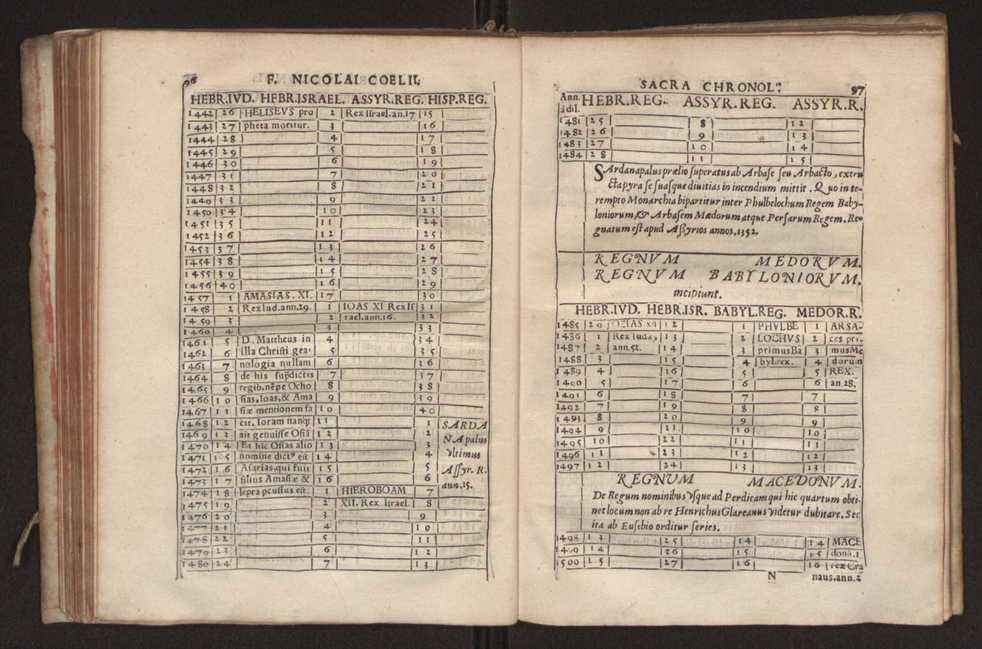 96
F. NICOLAI COELII.
HEBR.IVD. HEBR.ISRAEL. ASSYR.REG. HISP.REG.
1442 26 HELISEVS pro 2 Rex Israel.an.17 15
1443 27 pheta moritur. 3 16
1444 28 4 17
1445 29 5 18
1446 30 6 19
1447 31 7 20
1448 32 8 21
1449 33 9 22
1450 34 10 23
1451 35 11 24
1452 36 12 25
1453 37 13 26
1454 38 14 27
1455 39 15 28
1456 40 16 29
1457 1 AMASIAS. XI. 17 30
1458 2 Rex Iud.ann.29. 1 IOAS XI Rex Is 31
1459 3 2 rael.ann.16. 32
1460 4 3 33
1461 5 D. Mattheus in 4 34
1462 6 illa Christi gea- 5 35
1463 7 nologia nullam 6 36
1464 8 de his supdictis 7 37
1465 9 regib.nẽpe Ocho 8 38
1466 10 sias, Ioas, & Ama 9 39
1467 11 siæ mentionem fa 10 40
1468 12 cit. Ioram nanq; 11 1 SARDA
1469 12 ait genuisse Osiã 12 2 NApalus
1470 14 Et hic Osias alio 13 3 vltimus
1471 15 nomine dict9 est 14 4 Assyr. R.
1472 16 Asarias, qui fuit 15 5 ann.15.
1473 17 filius Amasiæ & 16 6
1474 18 lepra pcussus est. 1 HIEROBOAM 7
1475 19 2 XII. Rex Israel. 8
1476 20 3 9
1477 21 4 10
1478 22 5 11
1479 23 6 12
1480 24 7 13
SACRA CHRONOL.
97
Ann. à dil. HEBR.REG. ASSYR.REG. ASSYR.R.
1481 25 8 12
1482 26 9 13
1483 27 10 14
1484 28 11 15
SArdanapalus prælio superatus ab Arbase seu Arbacto, extru
cta pyra se suasque diuitias in incendium mittit. Quo in te-
rempto Monarchia bipartitur inter Phulbelochum Regem Baby-
loniorum, & Arbasem Mædorum atque Persarum Regem. Re-
gnatum est apud Assyrios annos.1352.
REGNVM MEDORVM.
REGNVM BABYLONIORVM.
incipiunt.
HEBR.IVD. HEBR.ISR. BABYL.REG. MEDOR.R.
1485 29 OZIAS XII 12 1 PHVLBE 1 ARSA-
1486 1 Rex Iuda, 13 2 LOCHVS 2 ces pri-
1487 2 ann.52. 14 3 primus Ba 3 mus Me
1488 3 15 4 byl.rex. 4 dorum
1489 4 16 5 5 REX.
1490 5 17 6 6 an.28.
1491 6 18 7 7
1492 7 19 8 8
1493 8 20 9 9
1494 9 21 10 10
1495 10 22 11 11
1496 11 23 12 12
1497 12 24 13 13
REGNUM MACEDONVM.
De Regum nominibus vsque ad Perdicam qui hic quartum obti-
net locum non ab re Henrichus Glareanus videtur dubitare. Sec
ita ab Eusebio orditur series.
1498 13 25 14 14 MACE
1499 14 26 15 15 donũ.1
1500 15 27 16 16 rex Cra
N naus.ann.2